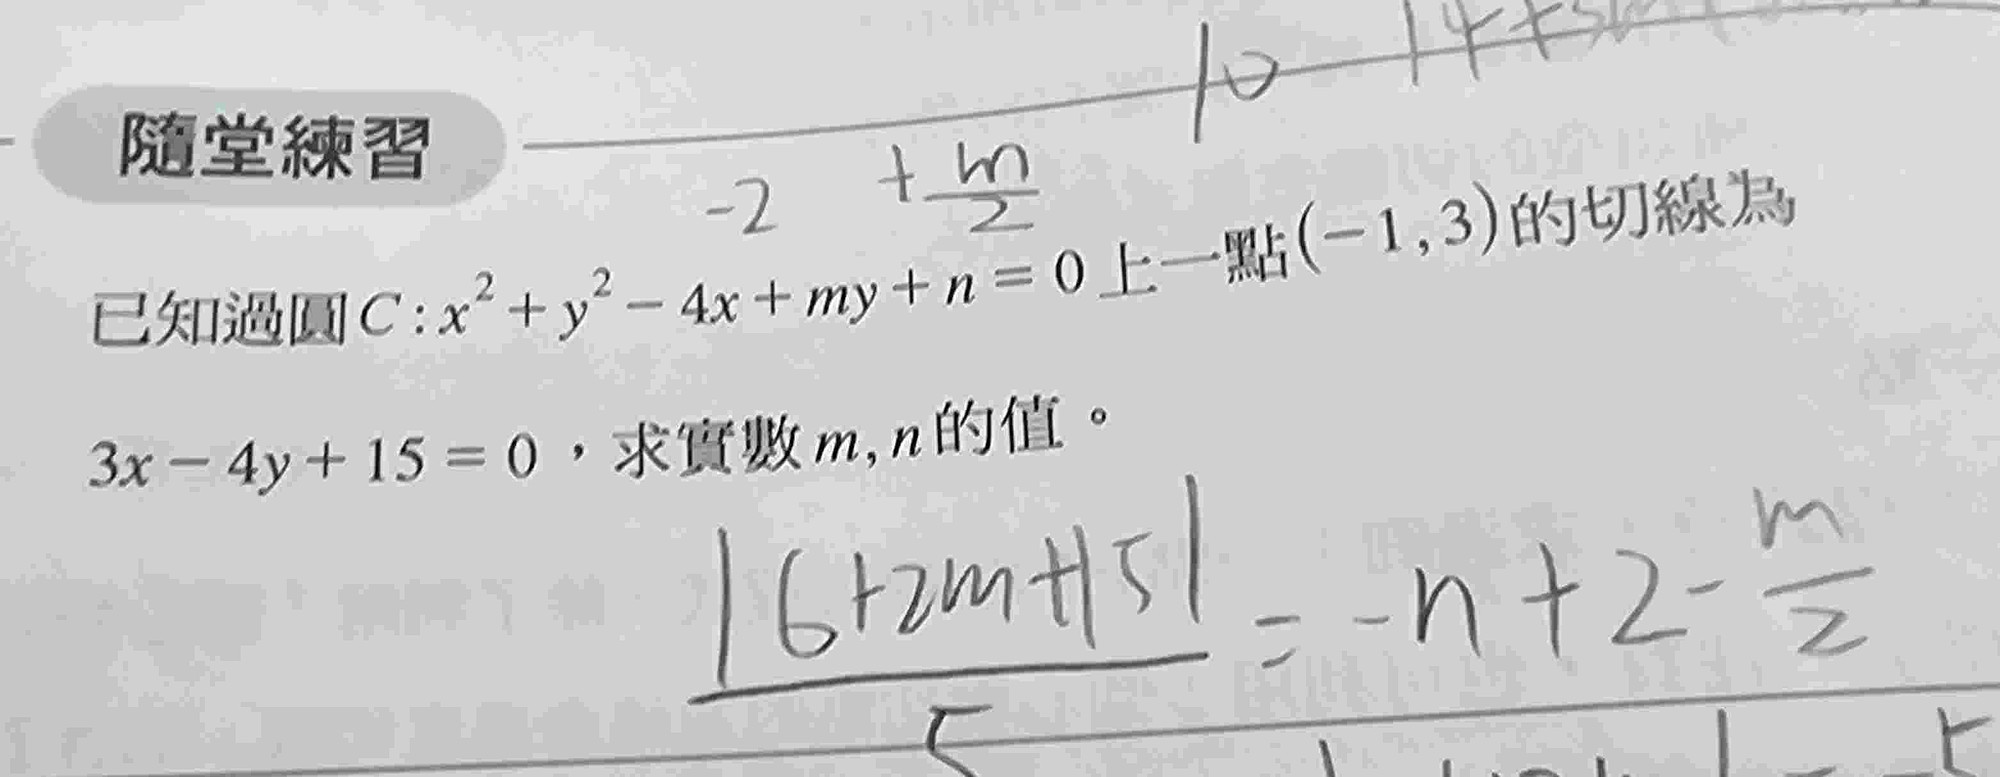 10 14+3m
隨堂練習
-2 +m/2
已知過圓C:x²+y²−4x+my+n=0上一點(−1,3)的切線為
3x−4y+15=0，求實數m,n的值。
|6+2m+15|/5 = -n+2-m/2